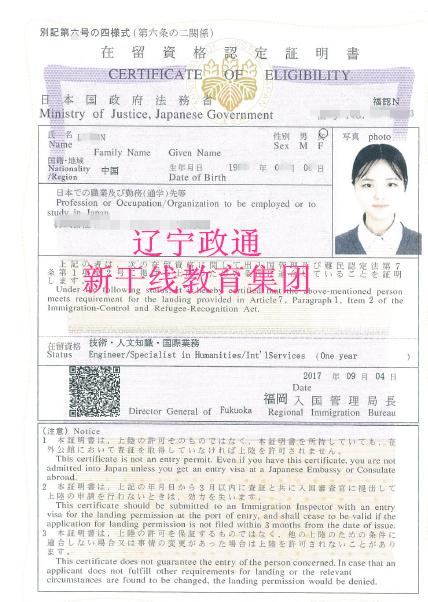 別記第六号の四様式(第六条の二関係)
在留資格認定証明書
CERTIFICATE OF ELIGIBILITY
日本国政府法務省
福認N
Ministry of Justice, Japanese Government
氏名
Name
Family Name Given Name
性別 男 女
Sex M F
写真 photo
国籍・地域
Nationality
/Region
中国
生年月日
Date of Birth
日本での職業及び勤務(通学)先等
Profession or Occupation/Organization to be employed or to
study in Japan
辽宁政通
新干线教育集团
meets requirement for the landing provided in Article 7, Paragraph 1, Item 2 of the
Immigration-Control and Refugee-Recognition Act.
在留資格
Status
技術・人文知識・国際業務
Engineer/Specialist in Humanities/Int'lServices (One year )
2017 年 09 月 04 日
Date
福岡 入国管理局長
Director General of Fukuoka Regional Immigration Bureau
(注意) Notice
1 本証明書は、上陸の許可そのものではなく、本証明書を所持していても、在
外公館において査証を取得していなければ上陸を許可されません。
This certificate is not an entry permit. Even if you have this certificate, you are not
admitted into Japan unless you get an entry visa at a Japanese Embassy or Consulate
abroad.
2 本証明書は、上記の年月日から3月以内に査証と共に入国審査官に提出して
上陸の申請を行わないときは、効力を失います。
This certificate should be submitted to an Immigration Inspector with an entry
visa for the landing permission at the port of entry, and shall cease to be valid if the
application for landing permission is not filed within 3 months from the date of issue.
3 本証明書は、上陸の許可を保証するものではなく、他の上陸のための条件に
適合しない場合又は事情の変更があった場合は上陸を許可されないことがあり
ます。
This certificate does not guarantee the entry of the person concerned. In case that an
applicant does not fulfill other requirements for landing or the relevant
circumstances are found to be changed, the landing permission would be denied.